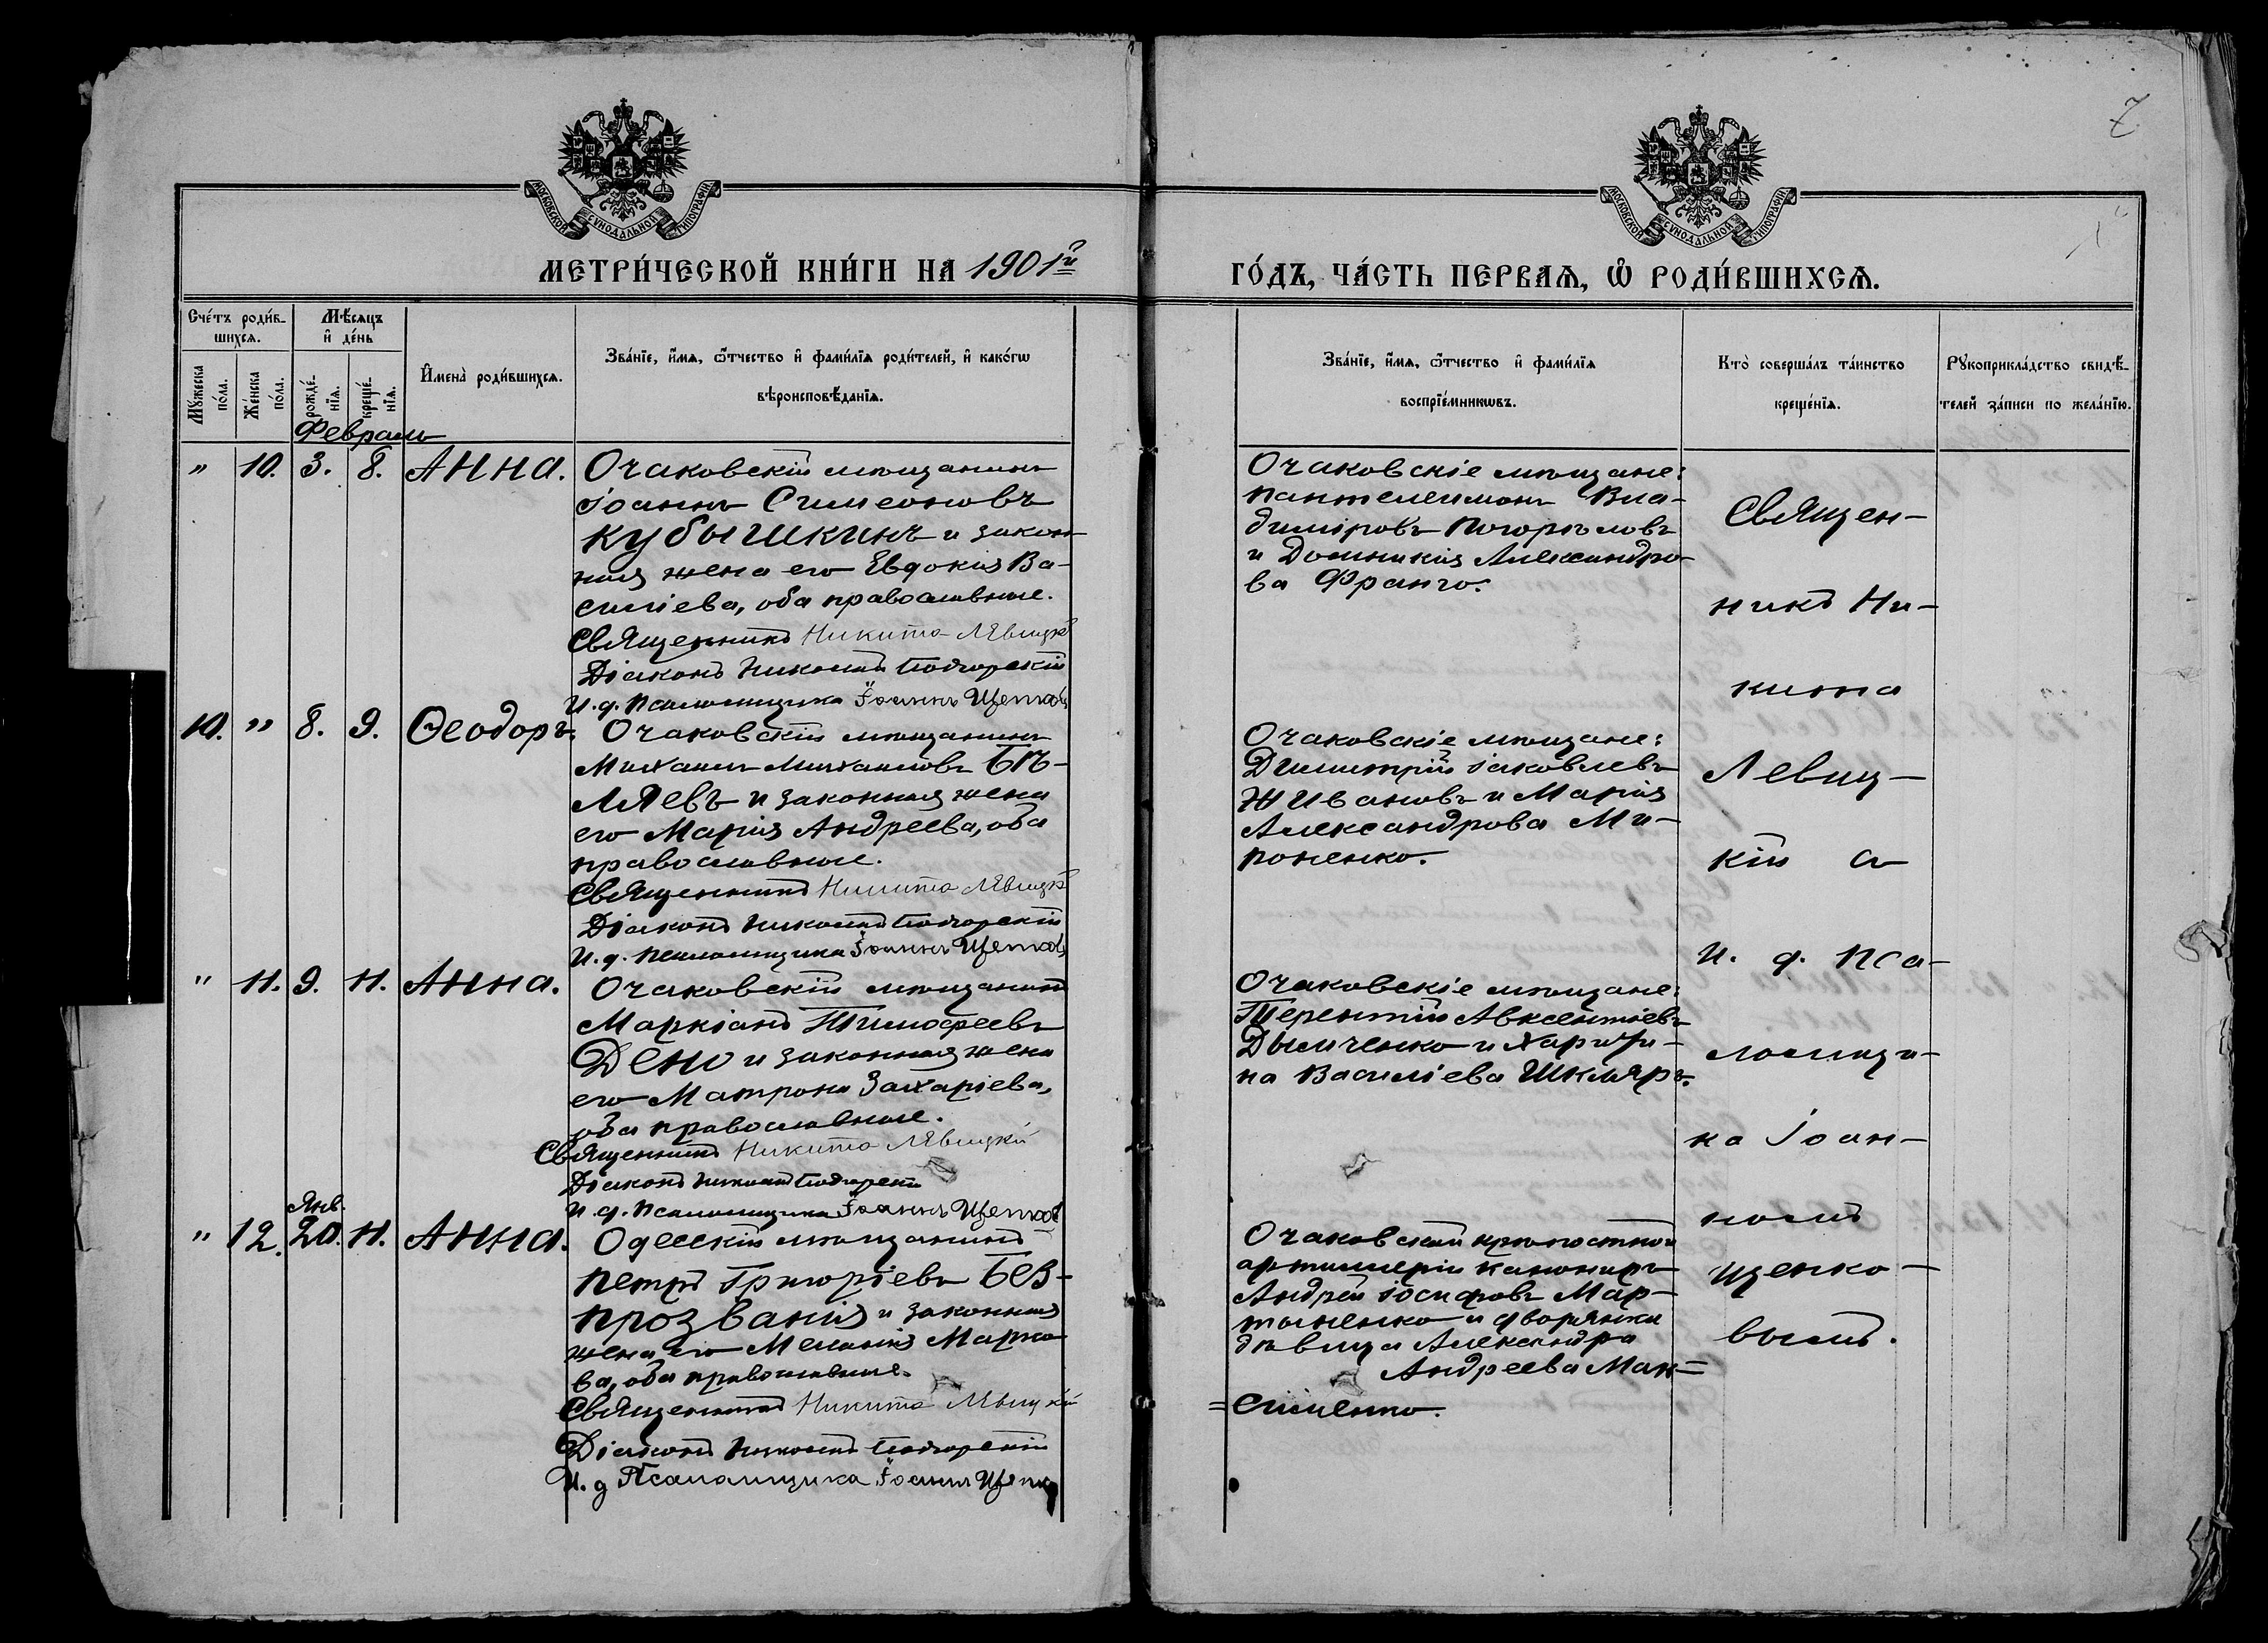 7
МОСКОВСКОЙ СУНОДАЛЬНОЙ ТИПОГРАФІИ.
МОСКОВСКОЙ СУНОДАЛЬНОЙ ТИПОГРАФІИ.
МЕТРИ́ЧЕСКОЙ КНИ́ГИ НА 1901й
ГО́ДЪ, ЧА́СТЬ ПЕРВАѦ, Ѡ РОДИ́ВШИХСѦ.
Сче́тъ роди́в-
шихсѧ.
Мꙋжеска
по́ла.
Же́нска
по́ла.
Мѣ́сѧцъ
и҆ де́нь
рожде́-
нїѧ.
креще́-
нїѧ.
И҆мена̀ роди́вшихсѧ.
Зва́нїе, и҆́мѧ, ѻ҆́тчество и҆ фами́лїѧ роди́телей, и҆ како́гѡ
вѣроисповѣ́данїѧ.
Зва́нїе, и҆́мѧ, ѻ҆́тчество и҆ фами́лїѧ
воспрїе́мникѡвъ.
Кто̀ соверша́лъ та́инство
креще́нїѧ.
Рꙋкоприкла́дство свидѣ́-
телей за́писи по жела́нїю.
Февраль
" 10. 3. 8. Анна.
Очаковскій мѣщанинъ
Іоаннъ Симеоновъ
Кубышкинъ и закон-
ная жена его Евдокія Ва-
силіева, оба православные.
Священникъ Никита Лѣвицкій
Діаконъ Николай Подгорскій
И. д. Псаломщика Іоаннъ Щенковъ
Очаковскіе мѣщане:
Пантелеимонъ Вла-
диміровъ Погорѣловъ
и Домникія Александро-
ва Франго.
10. " 8. 9. Ѳеодоръ.
Очаковскій мѣщанинъ
Михаилъ Михаиловъ Бѣ-
ляевъ и законная жена
его Марія Андреева, оба
православные.
Священникъ Никита Лѣвицкій
Діаконъ Николай Подгорскій
И. д. Псаломщика Іоаннъ Щенковъ
Очаковскіе мѣщане:
Димитрій Іаковлевъ
Живановъ и Марія
Александрова Ми-
роненко.
" 11. 9. 11. Анна.
Очаковскій мѣщанинъ
Маркіанъ Тимофеевъ
Дено и законная жена
его Матрона Захаріева,
оба православные.
Священникъ Никита Лѣвицкій
Діаконъ Николай Подгорскій
И. д. Псаломщика Іоаннъ Щенковъ
Очаковскіе мѣщане:
Терентій Авксентіевъ
Дымченко и Харити-
на Василіева Шкляръ.
Янв.
" 12. 20. 11. Анна.
Одесскій мѣщанинъ
Петръ Григоріевъ Без-
прозванія и законная
жена его Меланія Марко-
ва, оба православные.
Священникъ Никита Лѣвицкій
Діаконъ Николай Подгорскій
И. д Псаломщика Іоаннъ
Очаковской крѣпостной
артиллеріи канониръ
Андрей Іосифовъ Мар-
тыненко и дворянка
дѣвица Александра
Андреева Мак=
=сименко.
Священ-
никъ Ни-
кита
Левиц-
кій съ
и. д. пса-
ломщи-
ка Іоан-
номъ
Щенко-
вымъ.